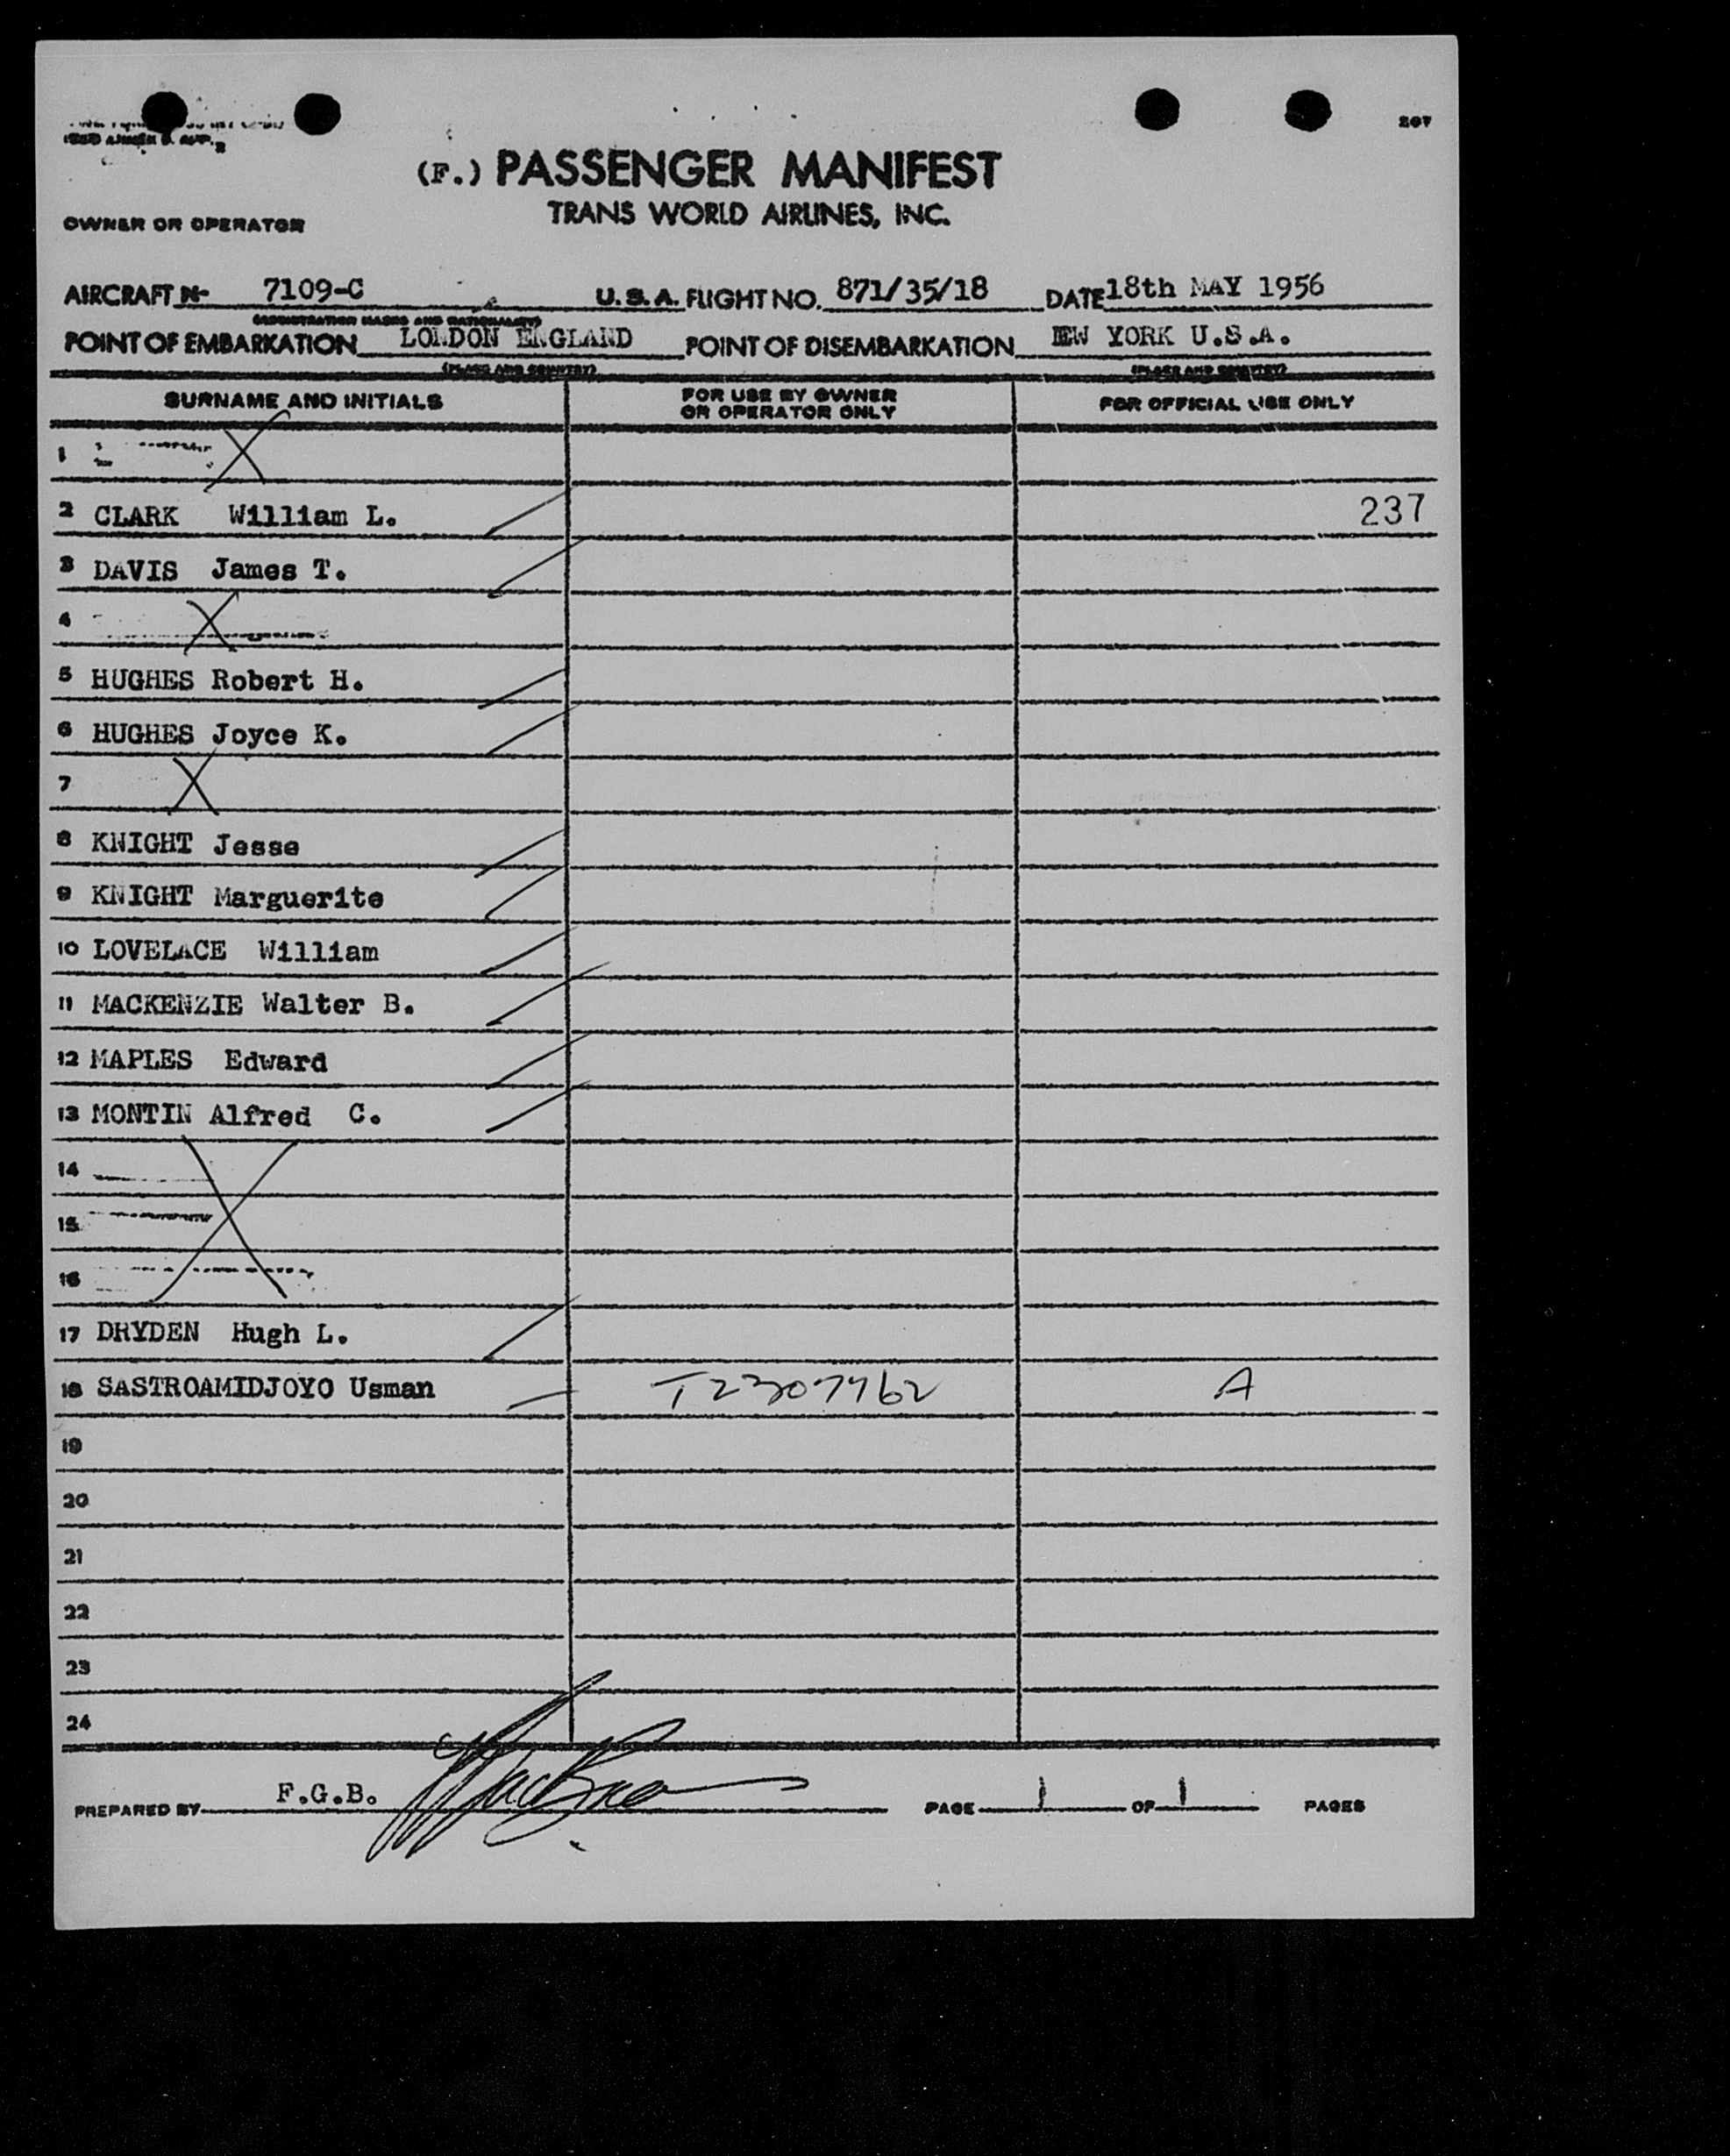 207
(F.) PASSENGER MANIFEST
TRANS WORLD AIRLINES, INC.
OWNER OR OPERATOR
AIRCRAFT N- 7109-C U.S.A. FLIGHT NO. 871/35/18 DATE 18th MAY 1956
(REGISTRATION MARKS AND NATIONALITY)
POINT OF EMBARKATION LONDON ENGLAND POINT OF DISEMBARKATION NEW YORK U.S.A.
(PLACE AND COUNTRY) (PLACE AND COUNTRY)
SURNAME AND INITIALS FOR USE BY OWNER OR OPERATOR ONLY FOR OFFICIAL USE ONLY
1
2 CLARK William L. 237
3 DAVIS James T.
4
5 HUGHES Robert H.
6 HUGHES Joyce K.
7
8 KNIGHT Jesse
9 KNIGHT Marguerite
10 LOVELACE William
11 MACKENZIE Walter B.
12 MAPLES Edward
13 MONTIN Alfred C.
14
15
16
17 DRYDEN Hugh L.
18 SASTROAMIDJOYO Usman T2307762 A
19
20
21
22
23
24
PREPARED BY F.G.B. PAGE 1 OF 1 PAGES